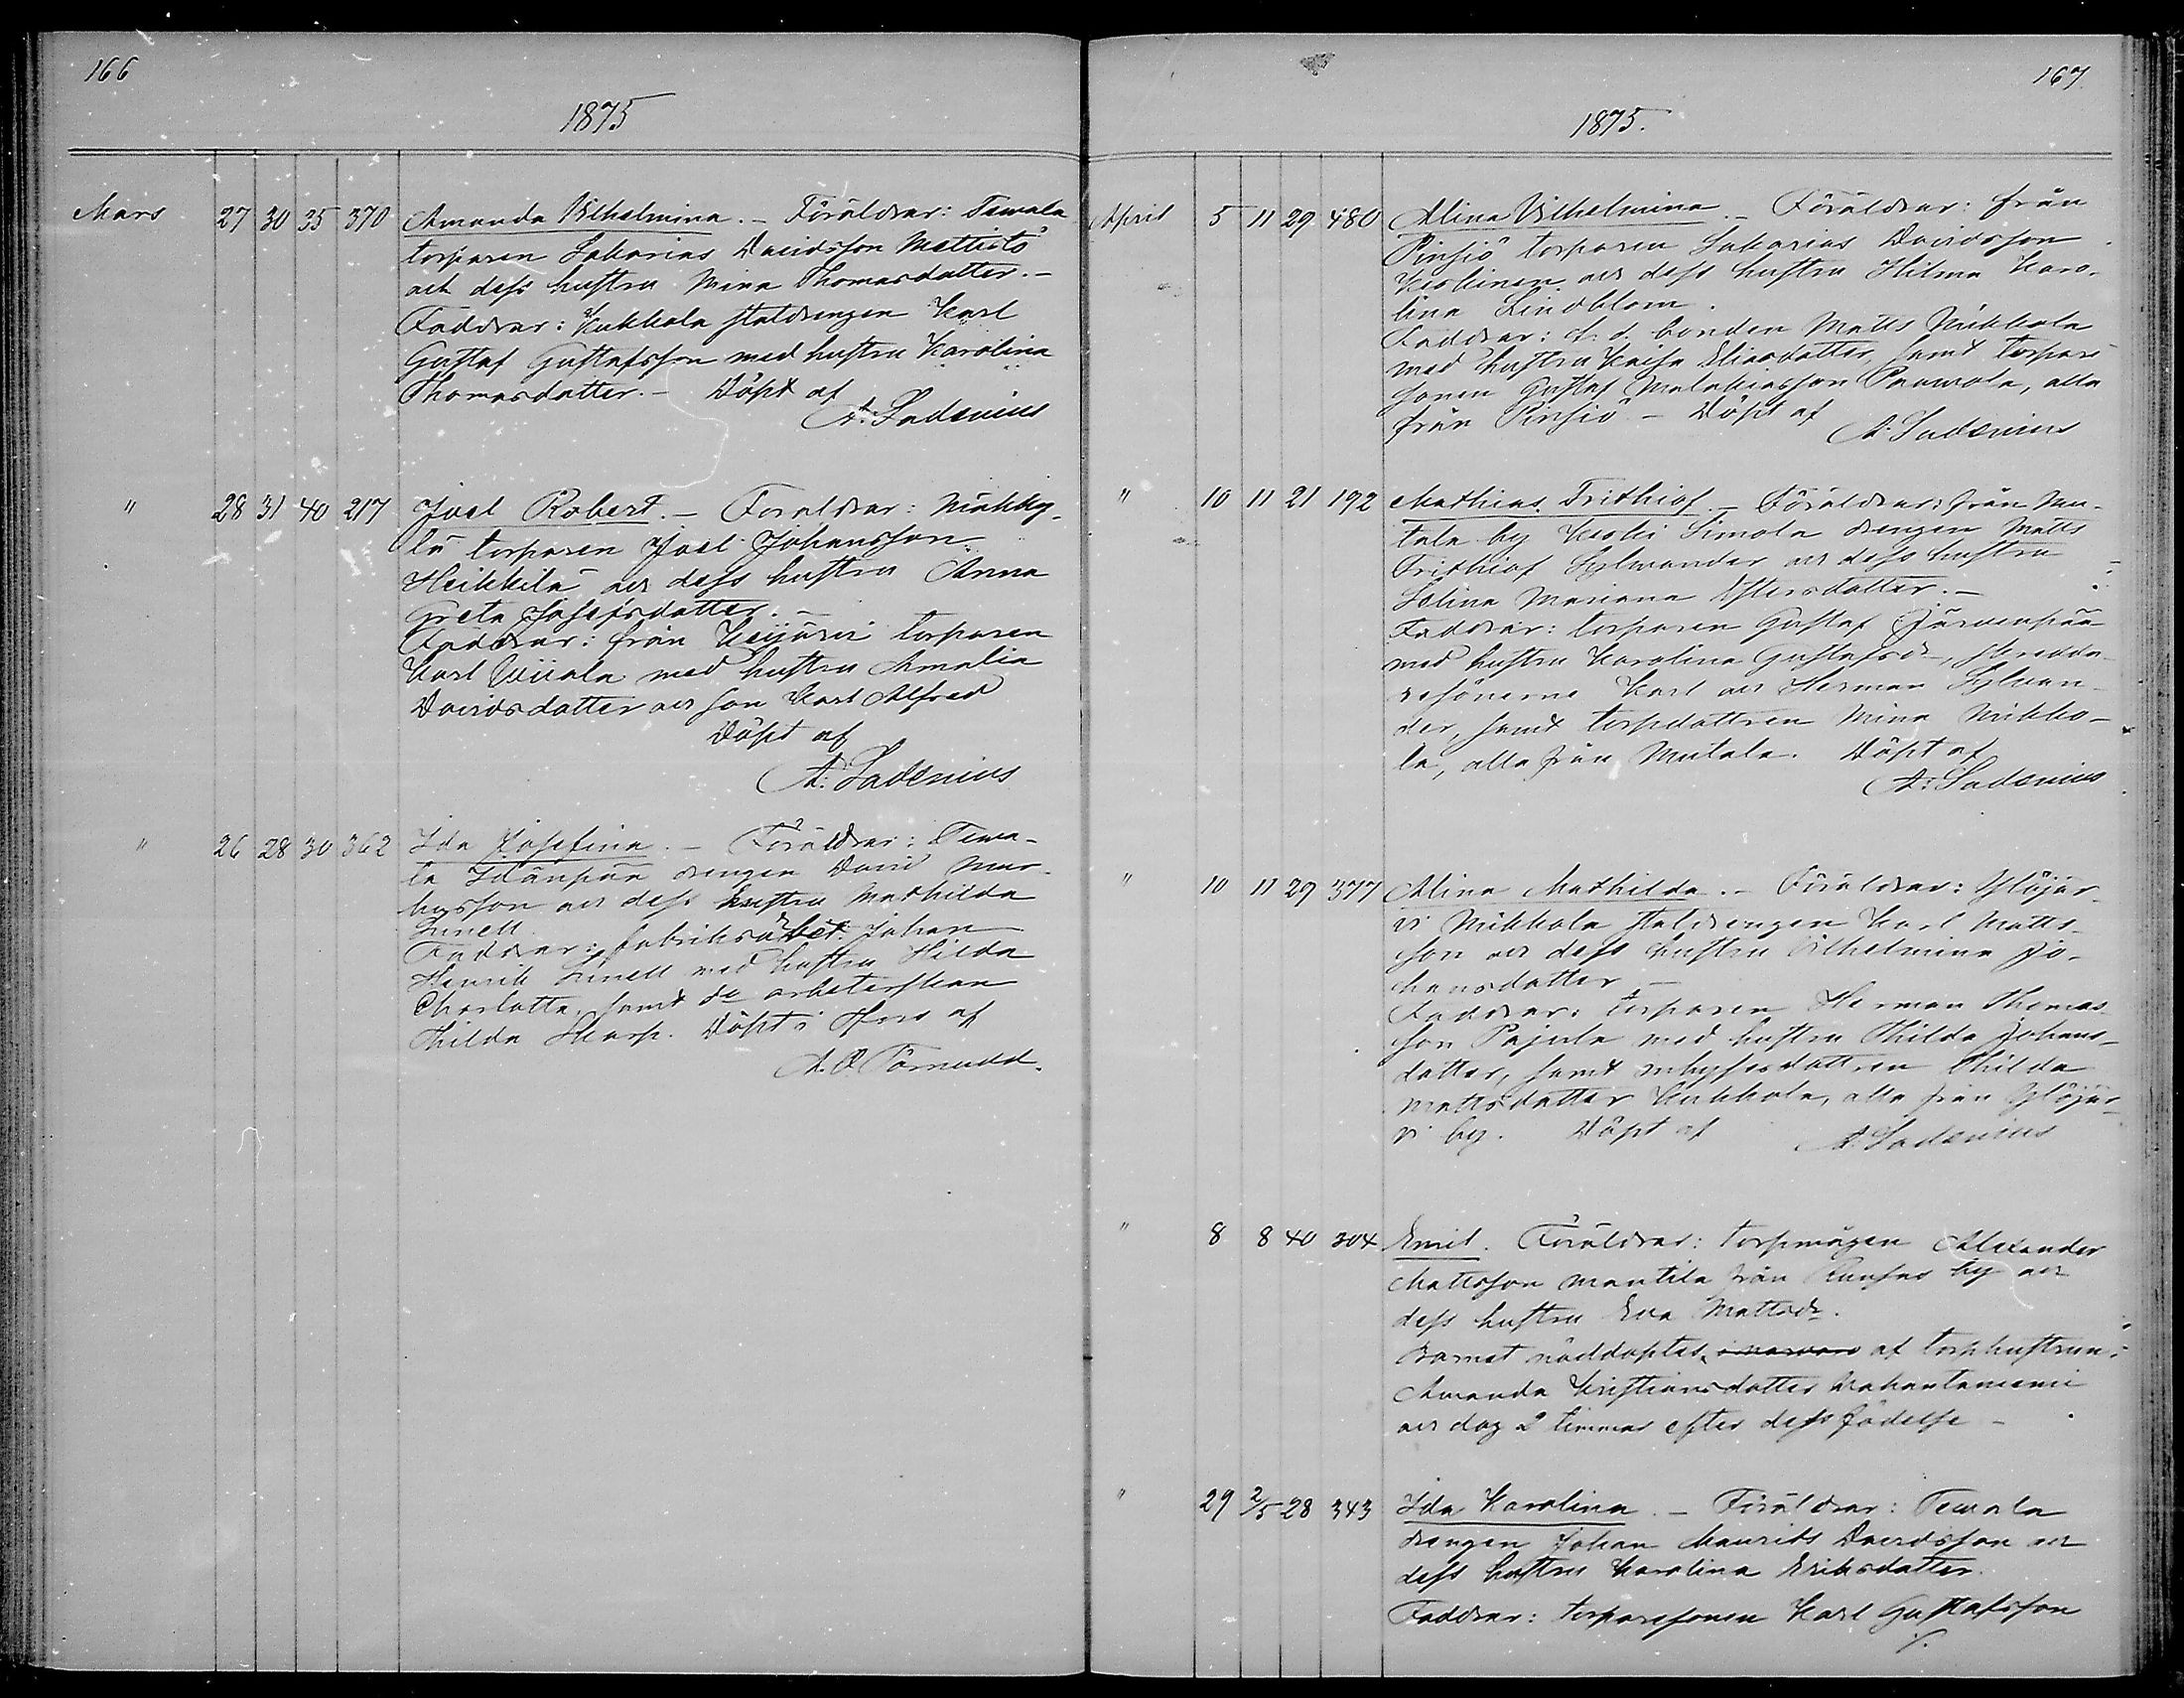 166
1875
Mars 27 30 35 370 Amanda Wilhelmina. – Föräldrar: Temala
torparen Sakarias Davidsson Mattistö
och dess hustru Mina Thomasdotter. –
Faddrar: Kukkola statdrengen Karl
Gustaf Gustafsson med hustru Karolina
Thomasdotter. – Döpt af
A. Ladenius
" 28 31 40 217 Joel Robert. – Föräldrar: Mikky-
lä torparen Joel Johansson
Heikkilä och dess hustru Anna
Greta Josefsdotter. –
Faddrar: från Keijärvi torparen
Karl Wiiala med hustru Amalia
Davidsdotter och son Karl Alfred
Döpt af
A. Ladenius
" 26 28 30 362 Ida Josefina. – Föräldrar: Tema-
la drengen David Mar-
kusson och dess hustru Mathilda
Linell.
Faddrar: fabriksarbet. Johan
Henrik Linell med hustru Hilda
Charlotta, samt arbeterskan
Hilda Skarp. Döpt i Fors af
A. O. Törnudd.
167
1875.
April 5 11 29 480 Alina Wilhelmina. – Föräldrar: från
Pinsiö torparen Sakarias Davidsson
Keskinen och dess hustru Hilma Karo-
lina Lindblom.
Faddrar: f. d. bonden Matts Mikkola
med hustru Kajsa Eliasdotter, samt torpare
sonen Gustaf Malakiasson Paawola, alla
från Pinsiö – Döpt af
A. Ladenius
" 10 11 21 192 Mathias Frithiof. – Föräldrar: från Mu-
tala by Keski Simola drengen Matts
Frithiof Sylvander och dess hustru
Selina Mariana
Faddrar: torparen Gustaf Järvenpää
med hustru Karolina Gustafsdr, skredda-
resönerne Karl och Herman Sylvan-
der, samt torpdottren Mina Mikko-
la, alla från Mutala. Döpt af
A. Ladenius
" 10 11 29 377 Alina Mathilda. – Föräldrar: Ylöjär-
vi Mikkola statdrengen Karl Matts-
son och dess hustru Wilhelmina Jo-
hansdotter –
Faddrar: torparen Herman Thomas-
son Pajula med hustru Hilda Johans-
dotter, samt inhysesdottren Hilda
Mattsdotter Kukkola, alla från Ylöjär-
vi by. Döpt af
A. Ladenius
" 8 8 40 304 Emil. Föräldrar: torpmågen Alexander
Mattsson Mantila från by och
dess hustru Eva Mattsdr.
Barnet nöddöptes af torphustrun
Amanda Kristiansdotter Wahantaniemi
och dog 2 timmar efter dess födelse –
" 29 2/5 28 343 Ida Karolina. – Föräldrar: Temala
drengen Johan Mauritz Davidsson och
dess hustru Karolina Eriksdotter.
Faddrar: torparesonen Karl Gustafsson
./.